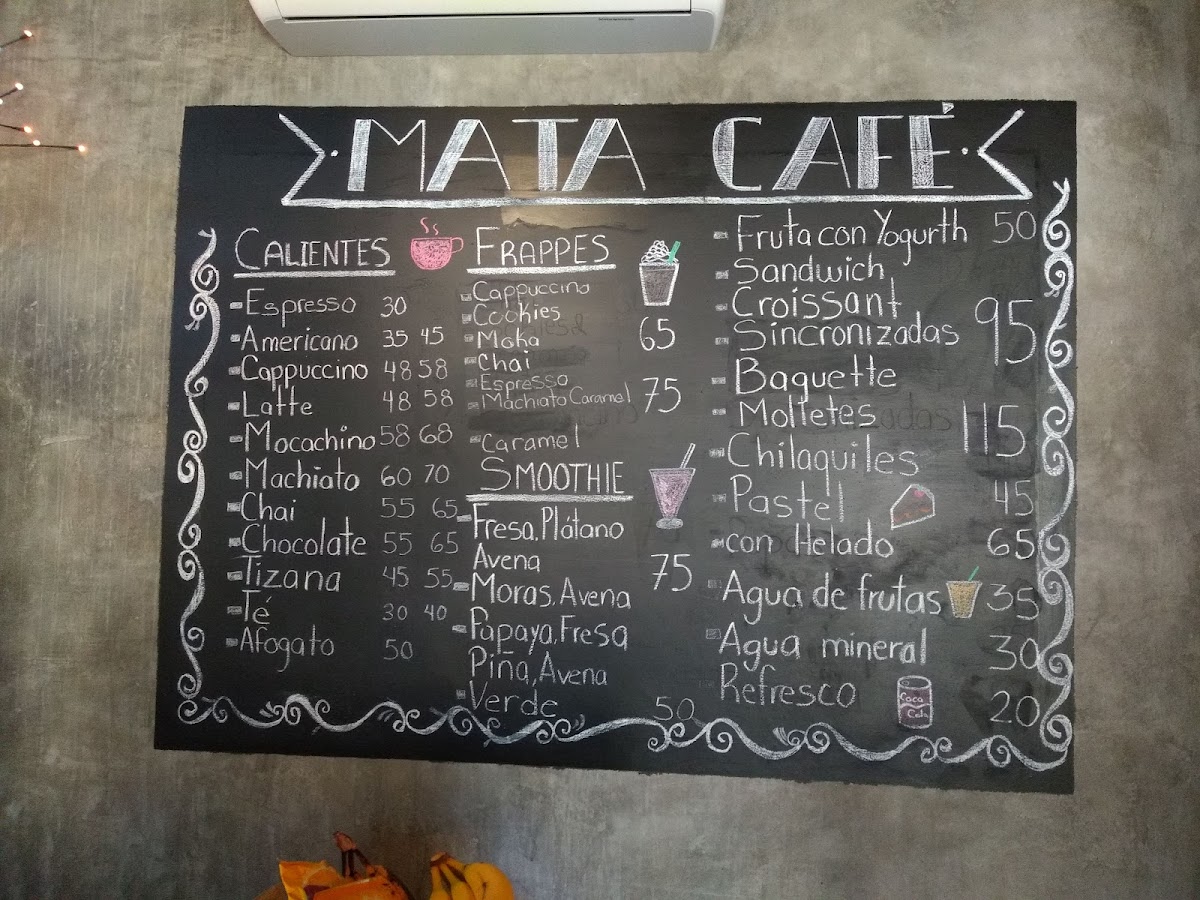 MATA CAFÉ
CALIENTES
Espresso 30
Americano 35 45
Cappuccino 48 58
Latte 48 58
Mocachino 58 68
Machiato 60 70
Chai 55 65
Chocolate 55 65
Tizana 45 55
Té 30 40
Afogato 50
FRAPPES
Cappuccino
Cookies
Moka 65
Chai
Espresso
Machiato Caramel 75
Caramel
SMOOTHIE
Fresa, Plátano
Avena
75
Moras, Avena
Papaya, Fresa
Piña, Avena
Verde 50
Fruta con Yogurth 50
Sandwich
Croissant
Sincronizadas 95
Baguette
Molletes
115
Chilaquiles
Pastel 45
con Helado 65
Agua de frutas 35
Agua mineral 30
Refresco 20
Coca